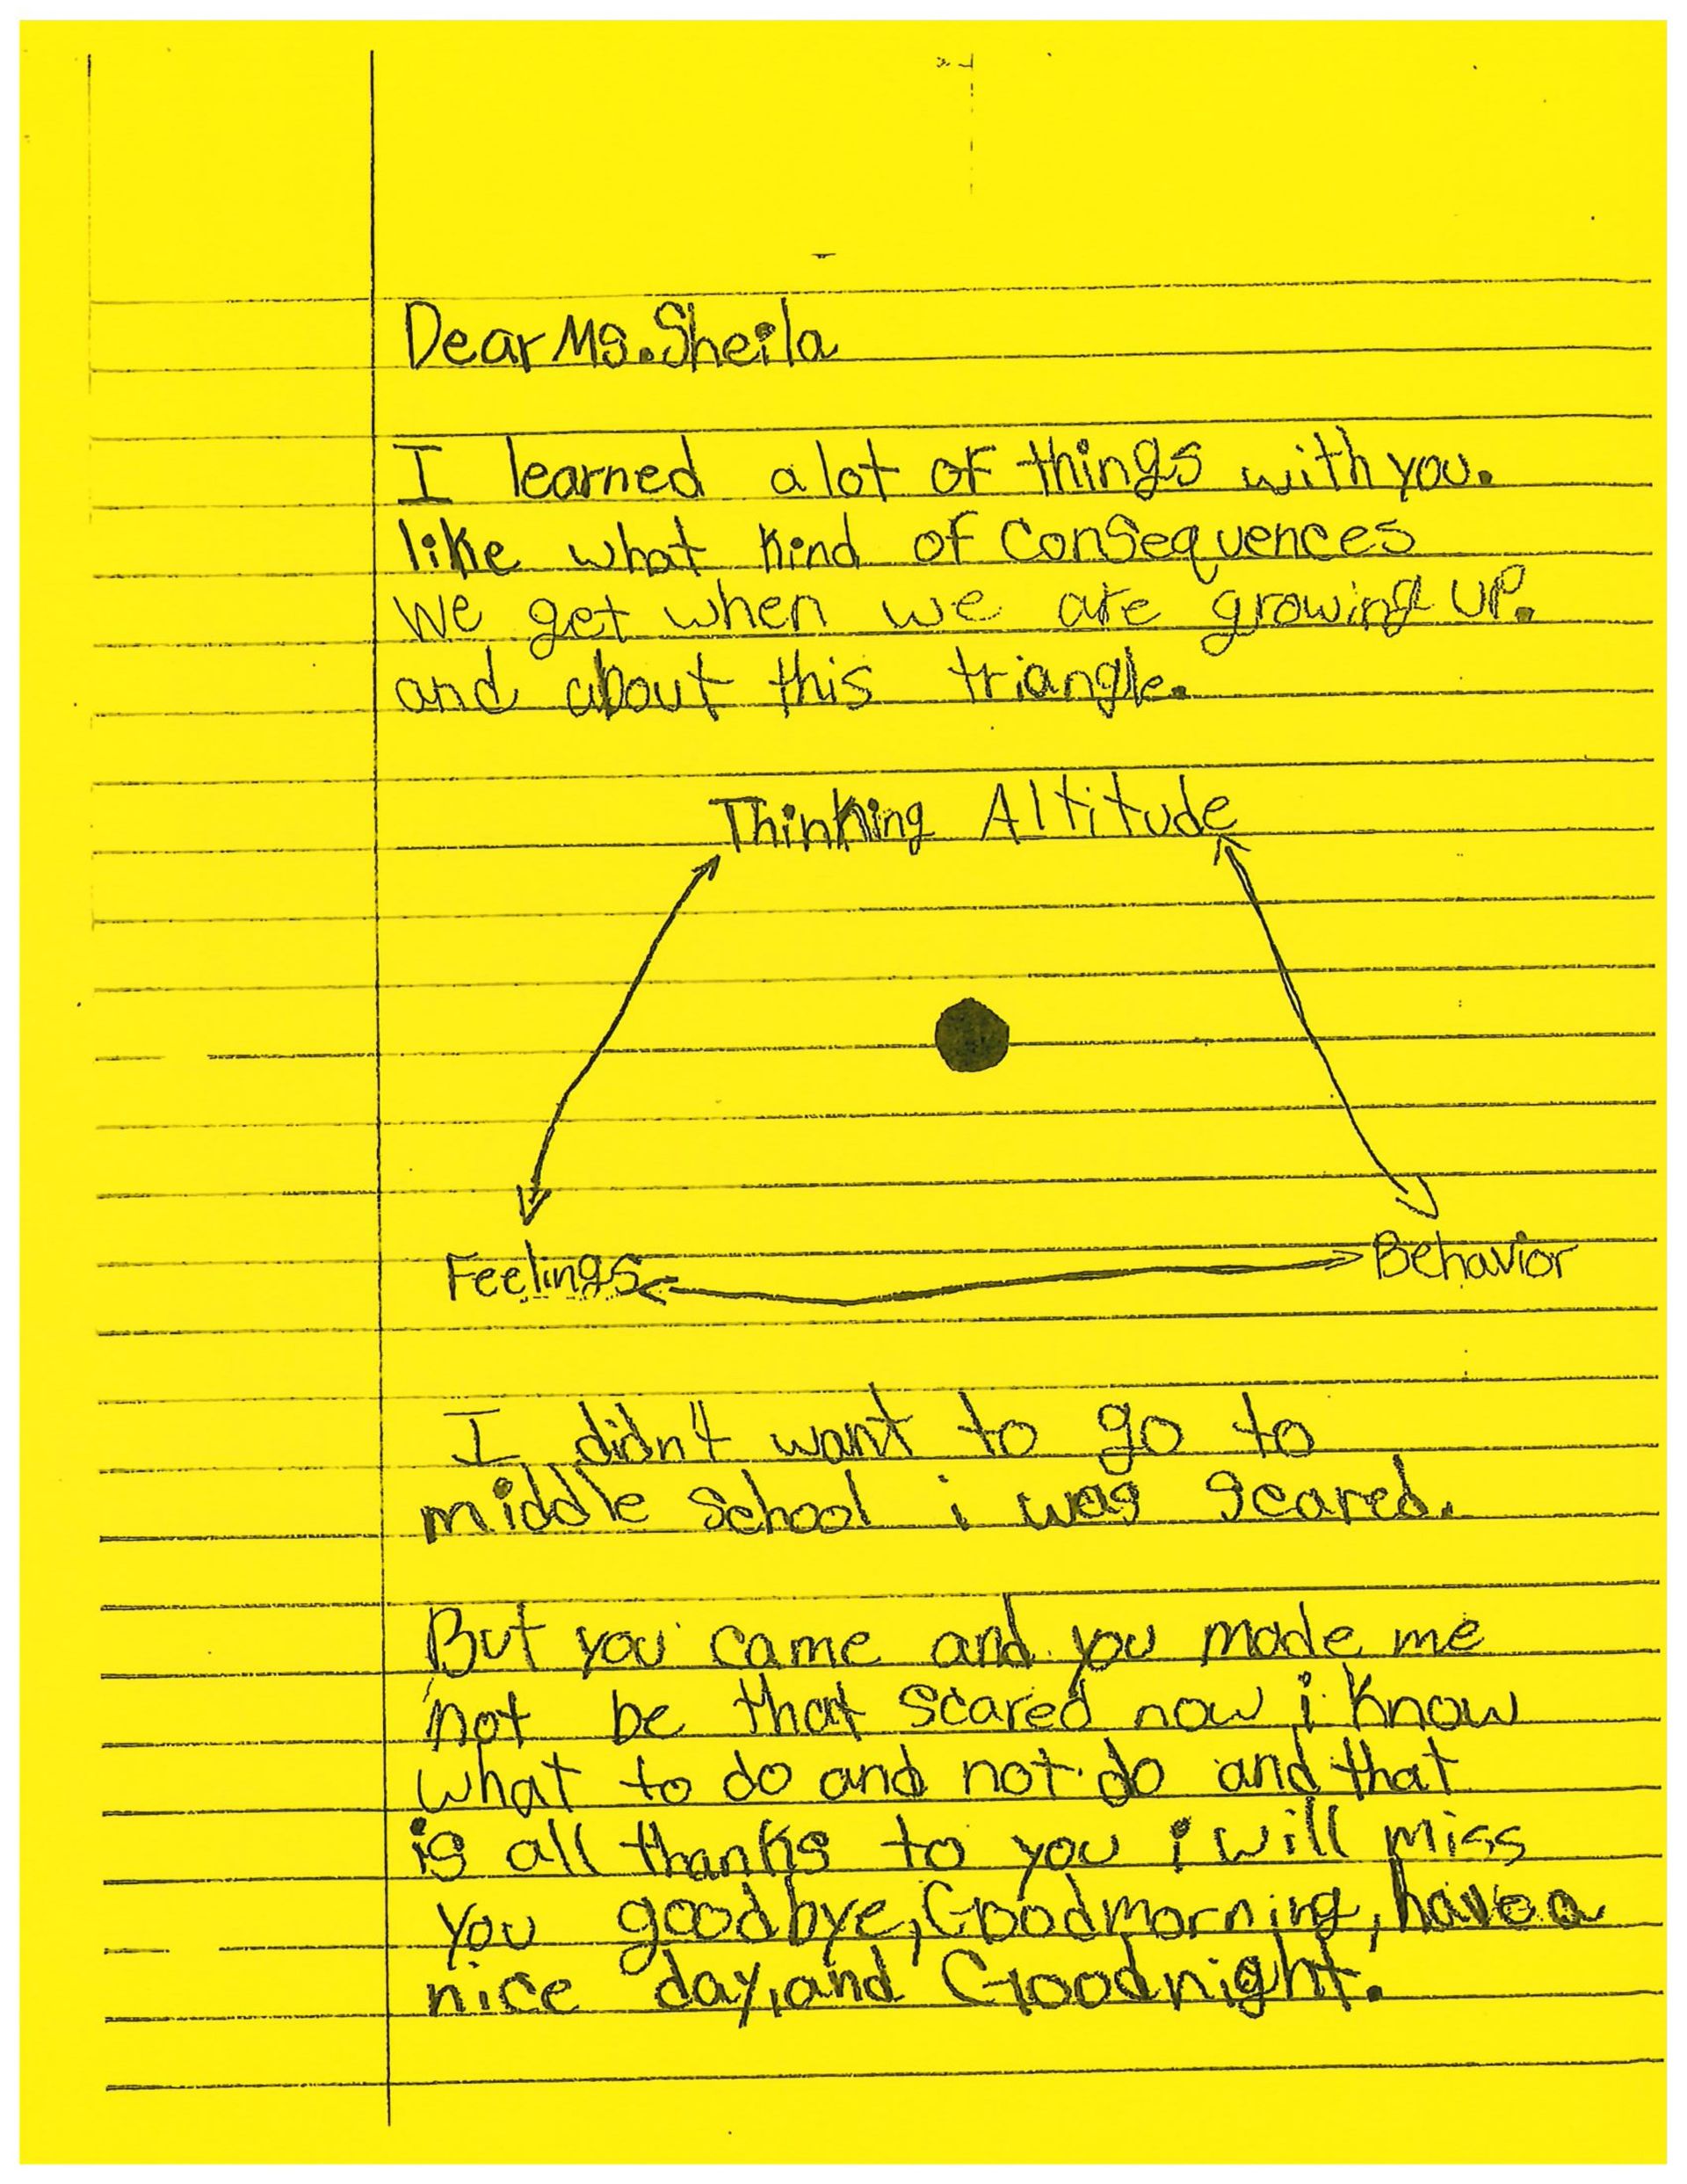 Dear Ms. Sheila
I learned a lot of things with you.
like what kind of Consequences
we get when we are growing up.
and about this triangle.
Thinking Altitude
Feelings
Behavior
I didn't want to go to
middle school i was scared.
But you came and you made me
not be that scared now i know
what to do and not do and that
is all thanks to you i will miss
you goodbye, Goodmorning, have a
nice day, and Goodnight.